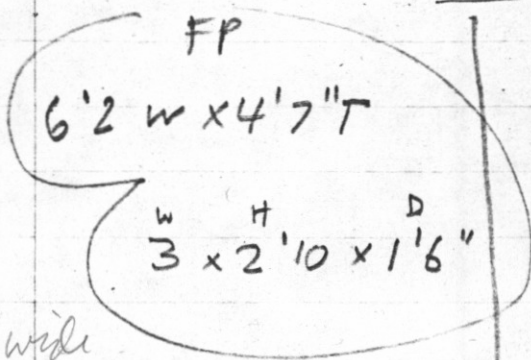 FP
6'2 W x 4'7" T
W H D
3 x 2'10 x 1'6"
wide